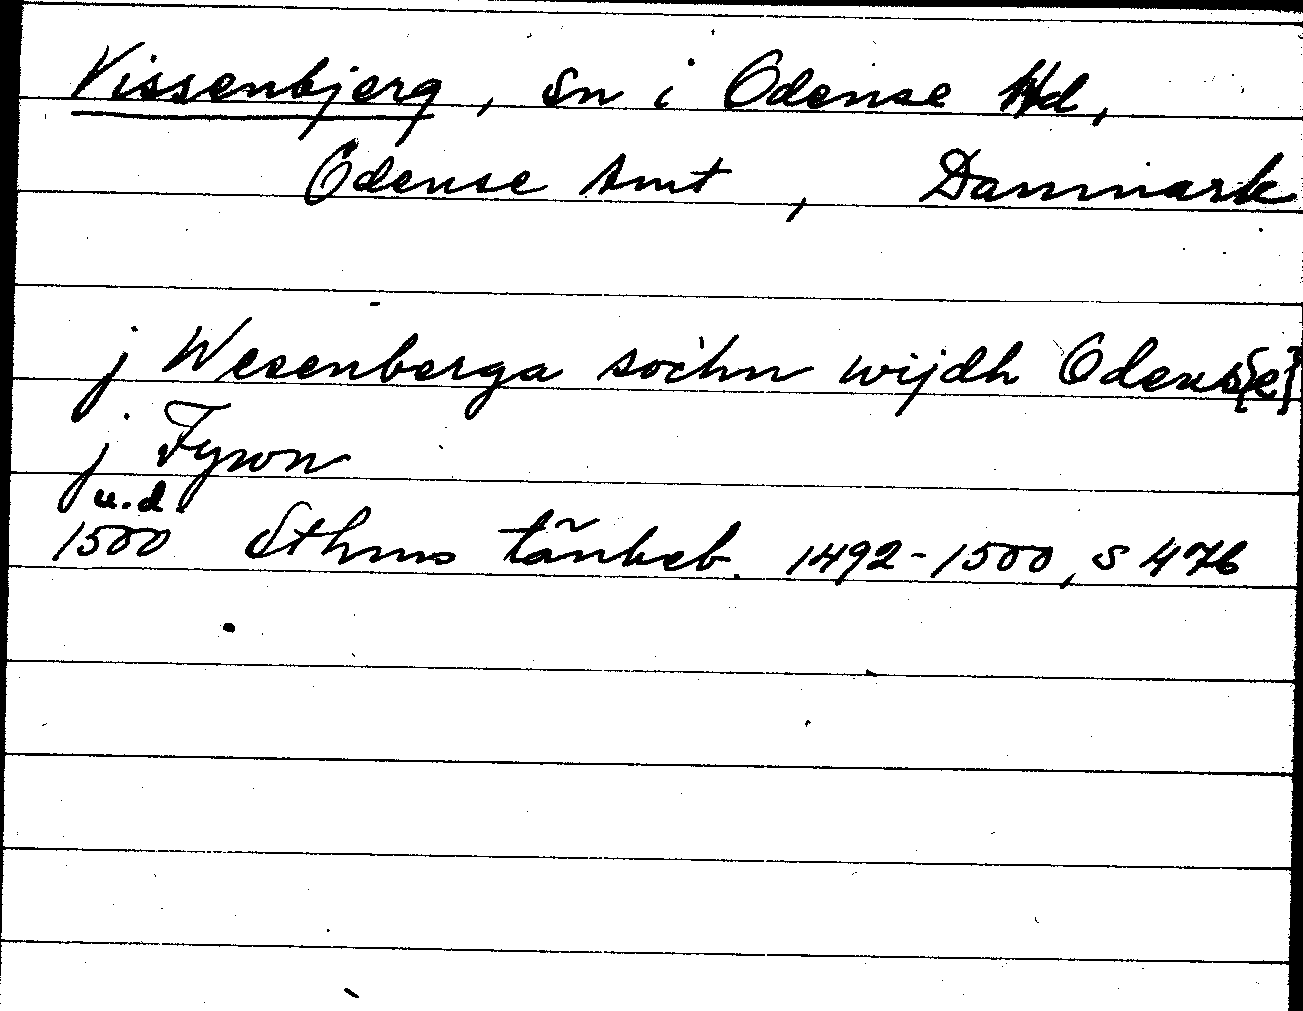 Vissenbjerg, Sn i Odense Hd,
Odense Amt, Danmark
j Wesenberga sochn wijdh Odens{e}
j Fywn
u.d.
1500 Sthms tänkeb. 1492-1500, s 476